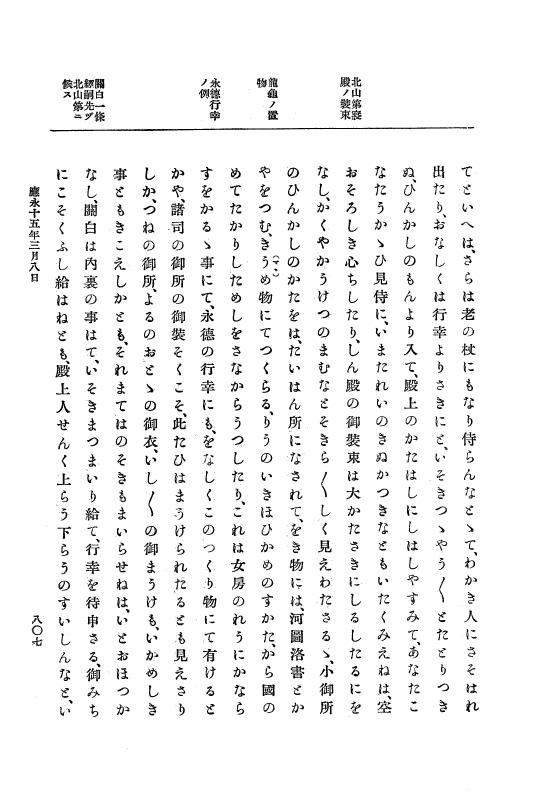 北山第寢
殿ノ裝束
龍龜ノ置
物
永德行幸
ノ例
關白一條
經嗣先ヅ
北山第ニ
候ス
てといへは、さらは老の杖にもなり侍らんなとゝて、わかき人にさそはれ
出たり、おなしくは行幸よりさきにと、いそきつゝやう〳〵とたとりつき
ぬ、ひんかしのもんより入て、殿上のかたはしにしはしやすみて、あなたこ
なたうかゝひ見侍に、いまたれいのきぬかつきなともいたくみえねは、空
おそろしき心ちしたり、しん殿の御裝束は大かたさきにしるしたるにを
なし、かくやかうけつのまむなとそきら〳〵しく見えわたさるゝ、小御所
のひんかしのかたをは、たいはん所になされて、をき物には、河圖洛書とか
やをつむ、きうめ物にてつくらる、りうのいきほひかめのすかた、から國の
めてたかりしためしをさなからうつしたり、これは女房のれうにかなら
すをかるゝ事にて、永德の行幸にも、をなしくこのつくり物にて有けると
かや、諸司の御所の御裝そくこそ、此たひはまうけられたるとも見えさり
しか、つねの御所、よるのおとゝの御衣、いし〳〵の御まうけも、いかめしき
事ともきこえしかとも、それまてはのそきもまいらせねは、いとおほつか
なし、關白は內裏の事はて、いそきまつまいり給て、行幸を待申さる、御みち
にこそくふし給はねとも、殿上人せんく上らう下らうのすいしんなと、い
應永十五年三月八日
八〇七